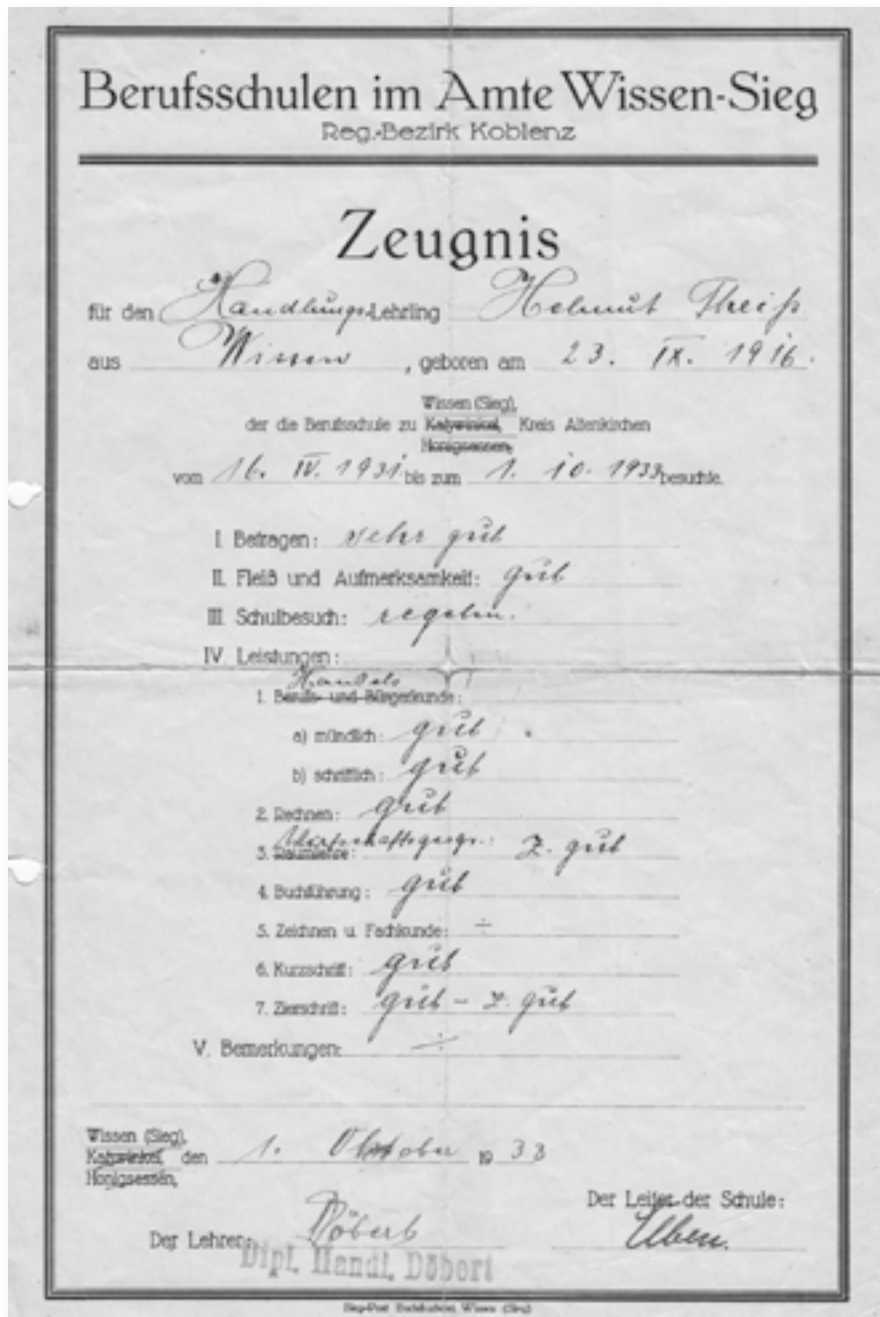 Berufsschulen im Amte Wissen-Sieg
Reg.-Bezirk Koblenz
Zeugnis
für den Handlungs-Lehrling Helmut Theiß
aus Wissen, geboren am 23. IX. 1916.
Wissen (Sieg),
der die Berufsschule zu Katzwinkel, Kreis Altenkirchen
Honigsessen,
vom 16. IV. 1931 bis zum 1. 10. 1933 besuchte.
I. Betragen: sehr gut
II. Fleiß und Aufmerksamkeit: gut
III. Schulbesuch: regelm.
IV. Leistungen:
Handels
1. Berufs- und Bürgerkunde:
a) mündlich: gut
b) schriftlich: gut
2. Rechnen: gut
Wirtschaftsgeogr.:
3. Raumlehre: z. gut
4. Buchführung: gut
5. Zeichnen u. Fachkunde: ÷
6. Kurzschrift: gut
7. Zierschrift: gut - z. gut
V. Bemerkungen: ÷
Wissen (Sieg),
Katzwinkel, den 1. Oktober 1933
Honigsessen,
Der Leiter der Schule:
Der Lehrer: Döbert
Dipl. Handl. Döbert
Sieg-Post Buchdruckerei, Wissen (Sieg)